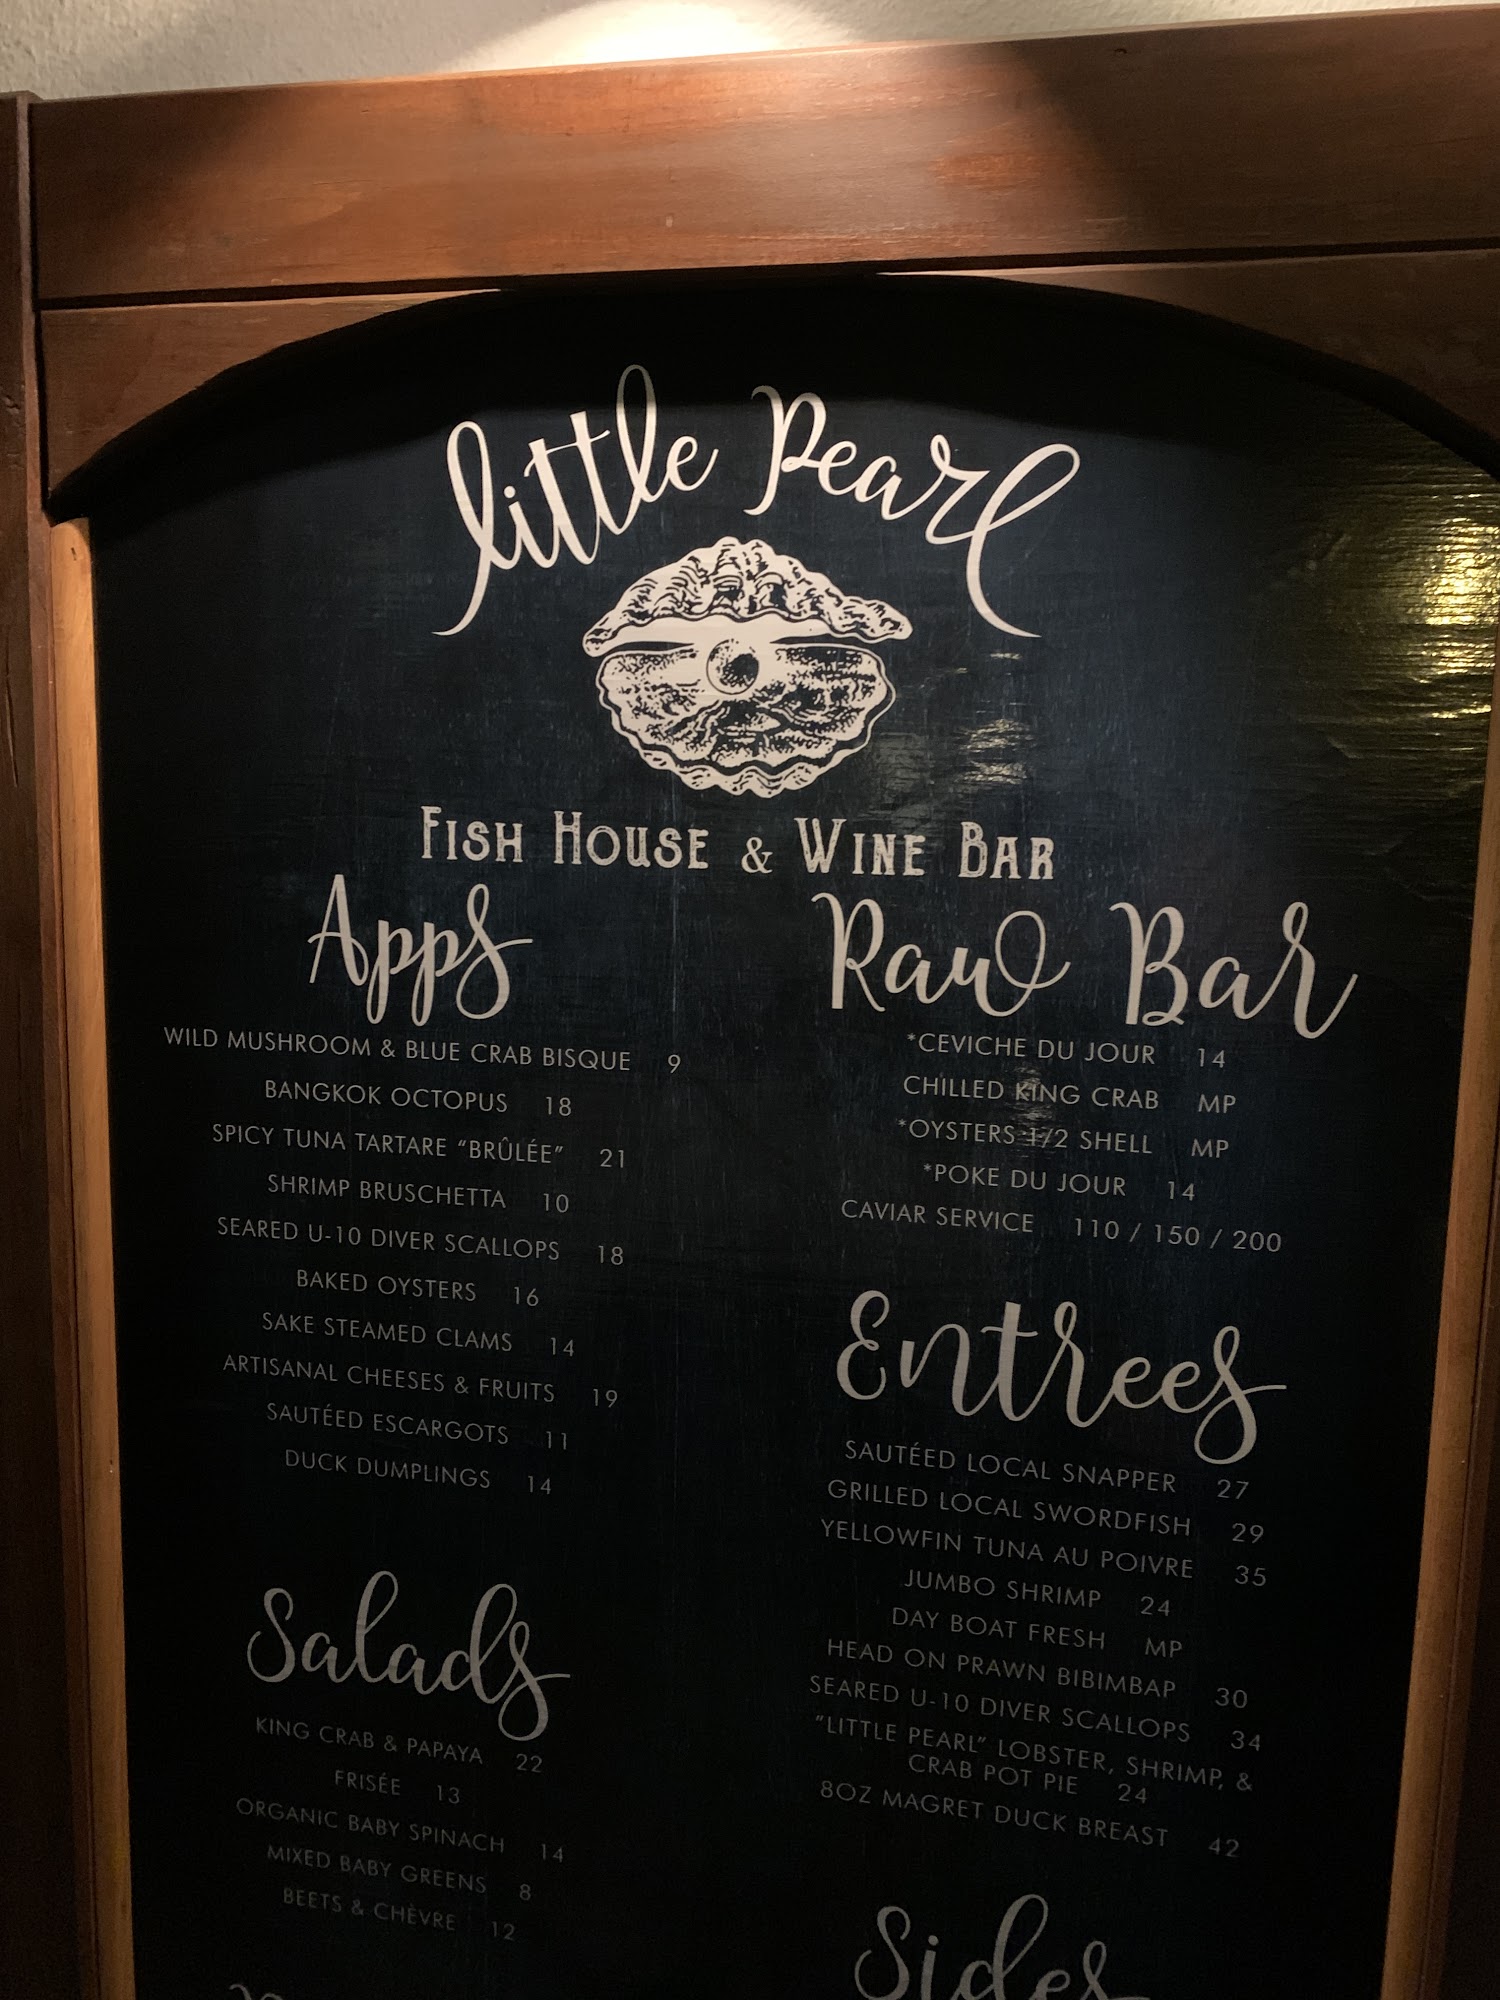 little Pearl
Fish House & Wine Bar
Apps
WILD MUSHROOM & BLUE CRAB BISQUE 9
BANGKOK OCTOPUS 18
SPICY TUNA TARTARE “BRÛLÉE” 21
SHRIMP BRUSCHETTA 10
SEARED U-10 DIVER SCALLOPS 18
BAKED OYSTERS 16
SAKE STEAMED CLAMS 14
ARTISANAL CHEESES & FRUITS 19
SAUTÉED ESCARGOTS 11
DUCK DUMPLINGS 14
Salads
KING CRAB & PAPAYA 22
FRISÉE 13
ORGANIC BABY SPINACH 14
MIXED BABY GREENS 8
BEETS & CHÈVRE 12
Raw Bar
*CEVICHE DU JOUR 14
CHILLED KING CRAB MP
*OYSTERS 1/2 SHELL MP
*POKE DU JOUR 14
CAVIAR SERVICE 110 / 150 / 200
Entrees
SAUTÉED LOCAL SNAPPER 27
GRILLED LOCAL SWORDFISH 29
YELLOWFIN TUNA AU POIVRE 35
JUMBO SHRIMP 24
DAY BOAT FRESH MP
HEAD ON PRAWN BIBIMBAP 30
SEARED U-10 DIVER SCALLOPS 34
“LITTLE PEARL” LOBSTER, SHRIMP, &
CRAB POT PIE 24
8OZ MAGRET DUCK BREAST 42
Sides